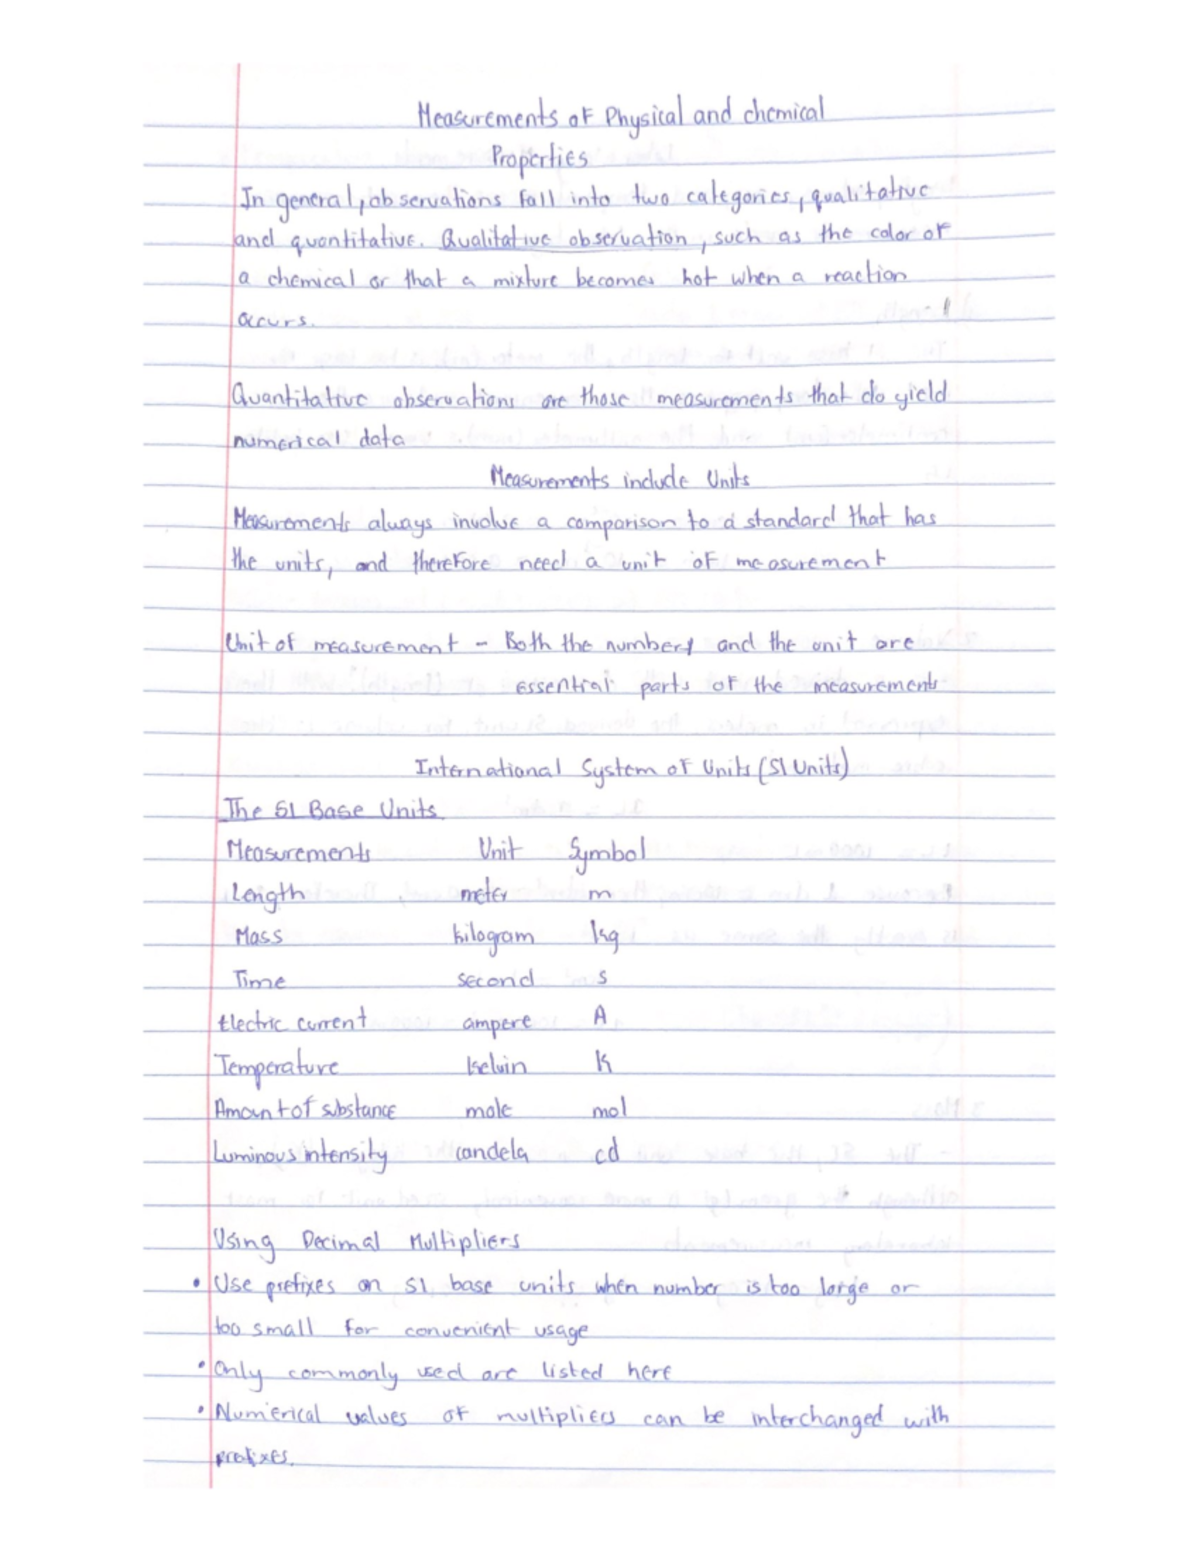 Measurements of Physical and chemical
Properties
In general, observations fall into two categories, qualitative
and quantitative. Qualitative observation, such as the color of
a chemical or that a mixture becomes hot when a reaction
occurs.
Quantitative observations are those measurements that do yield
numerical data
Measurements include Units
Measurements always involve a comparison to a standard that has
the units, and therefore need a unit of measurement
Unit of measurement - Both the number and the unit are
essential parts of the measurements
International System of Units (SI Units)
The SI Base Units
Measurements Unit Symbol
Length meter m
Mass kilogram kg
Time second s
Electric current ampere A
Temperature kelvin K
Amount of substance mole mol
Luminous intensity candela cd
Using Decimal Multipliers
• Use prefixes on SI base units when number is too large or
too small for convenient usage
• Only commonly used are listed here
• Numerical values of multipliers can be interchanged with
prefixes.